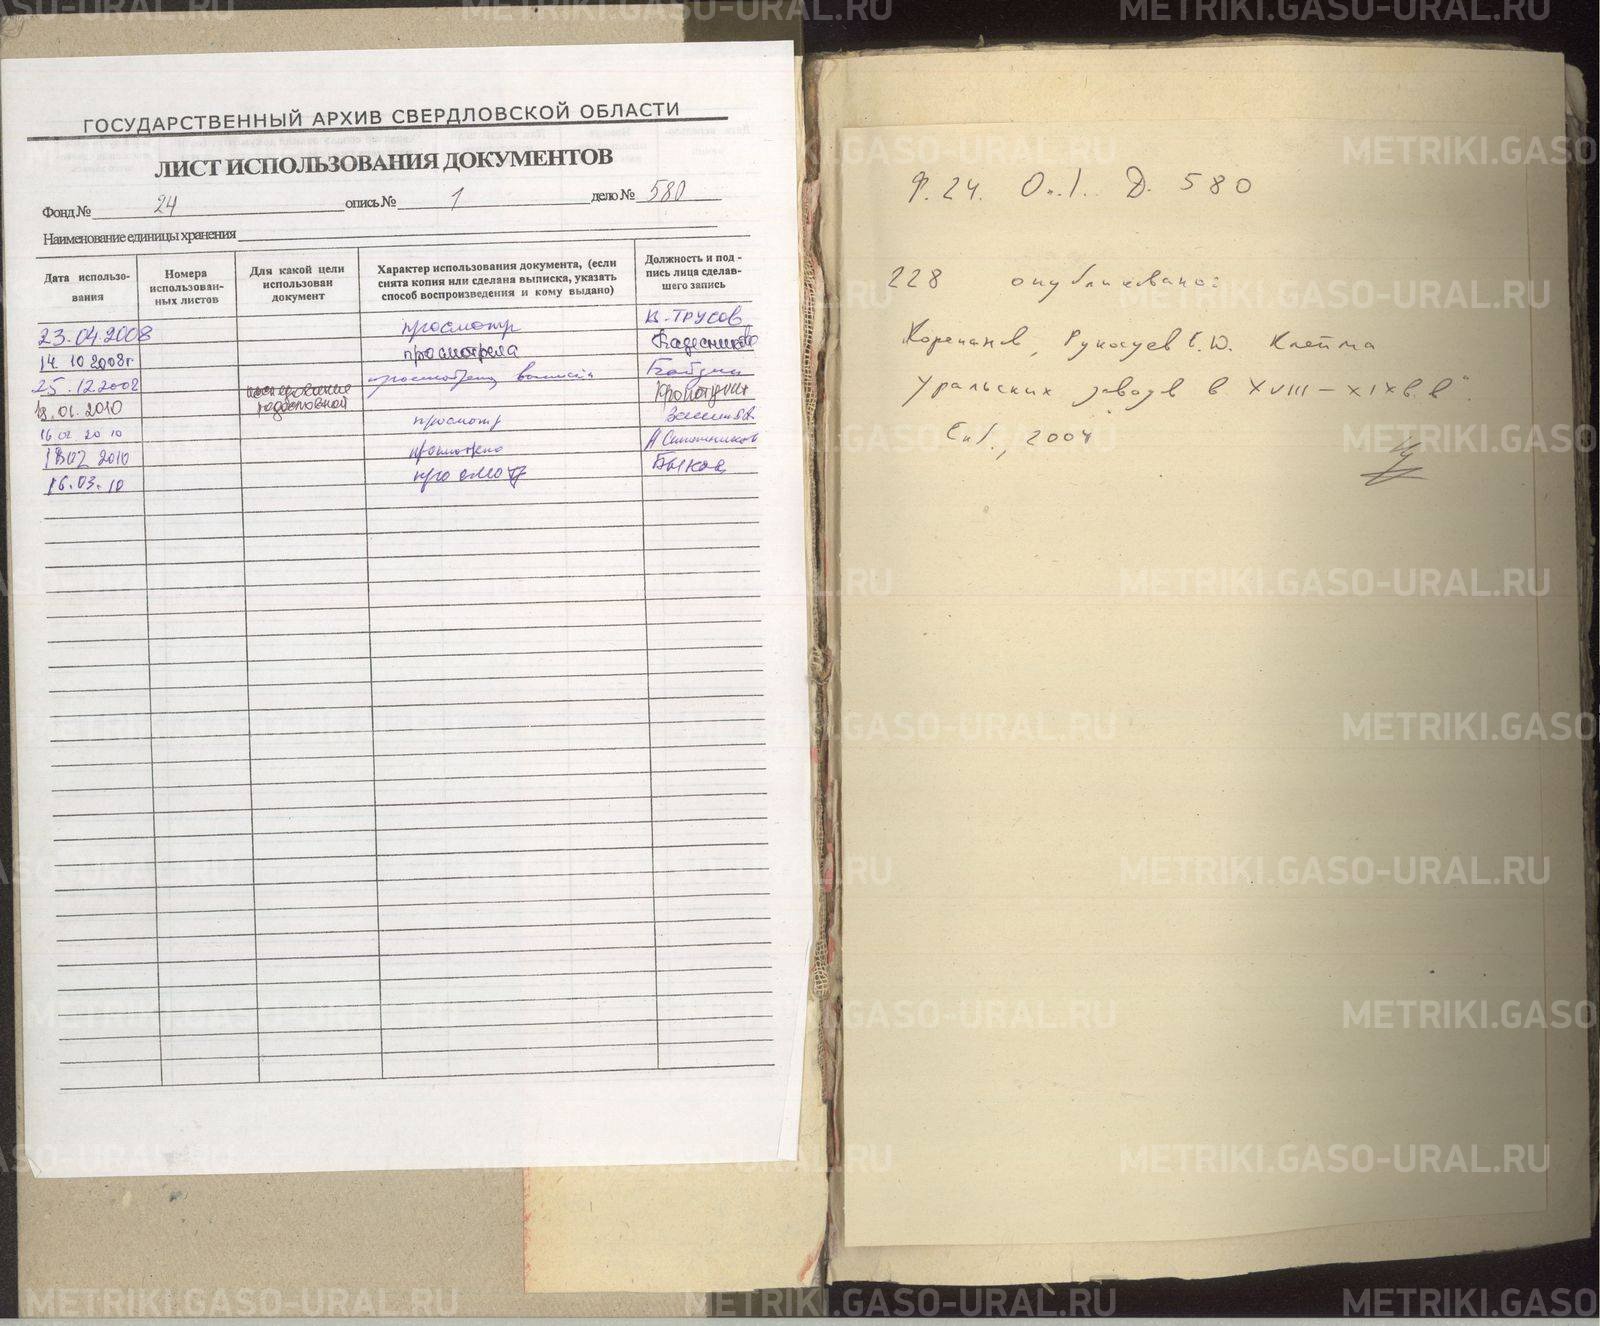 ГОСУДАРСТВЕННЫЙ АРХИВ СВЕРДЛОВСКОЙ ОБЛАСТИ
ЛИСТ ИСПОЛЬЗОВАНИЯ ДОКУМЕНТОВ
Фонд № 24 опись № 1 дело № 580
Наименование единицы хранения
Дата использо-
вания
Номера
использован-
ных листов
Для какой цели
использован
документ
Характер использования документа, (если
снята копия или сделана выписка, указать
способ воспроизведения и кому выдано)
Должность и под -
пись лица сделав-
шего запись
23.04.2008 просмотр В. Трусов
14.10 2008г просмотрела
25.12.2008
18.01.2010 родословной
16 02 2010 просмотр
18 02 2010 просмотрено
16.03.10 просмотр Быков
Ф. 24. Оп. 1. Д. 580
228 опубликовано:
Корепанов, Рукосуев Е.Ю. Клейма
уральских заводов в XVIII – XIX в.в".
Екб., 2004
METRIKI.GASO-URAL.RU